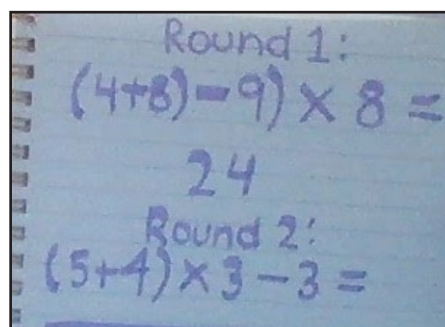 Round 1:
(4+8)-9) × 8 =
24
Round 2:
(5+4) × 3 - 3 =